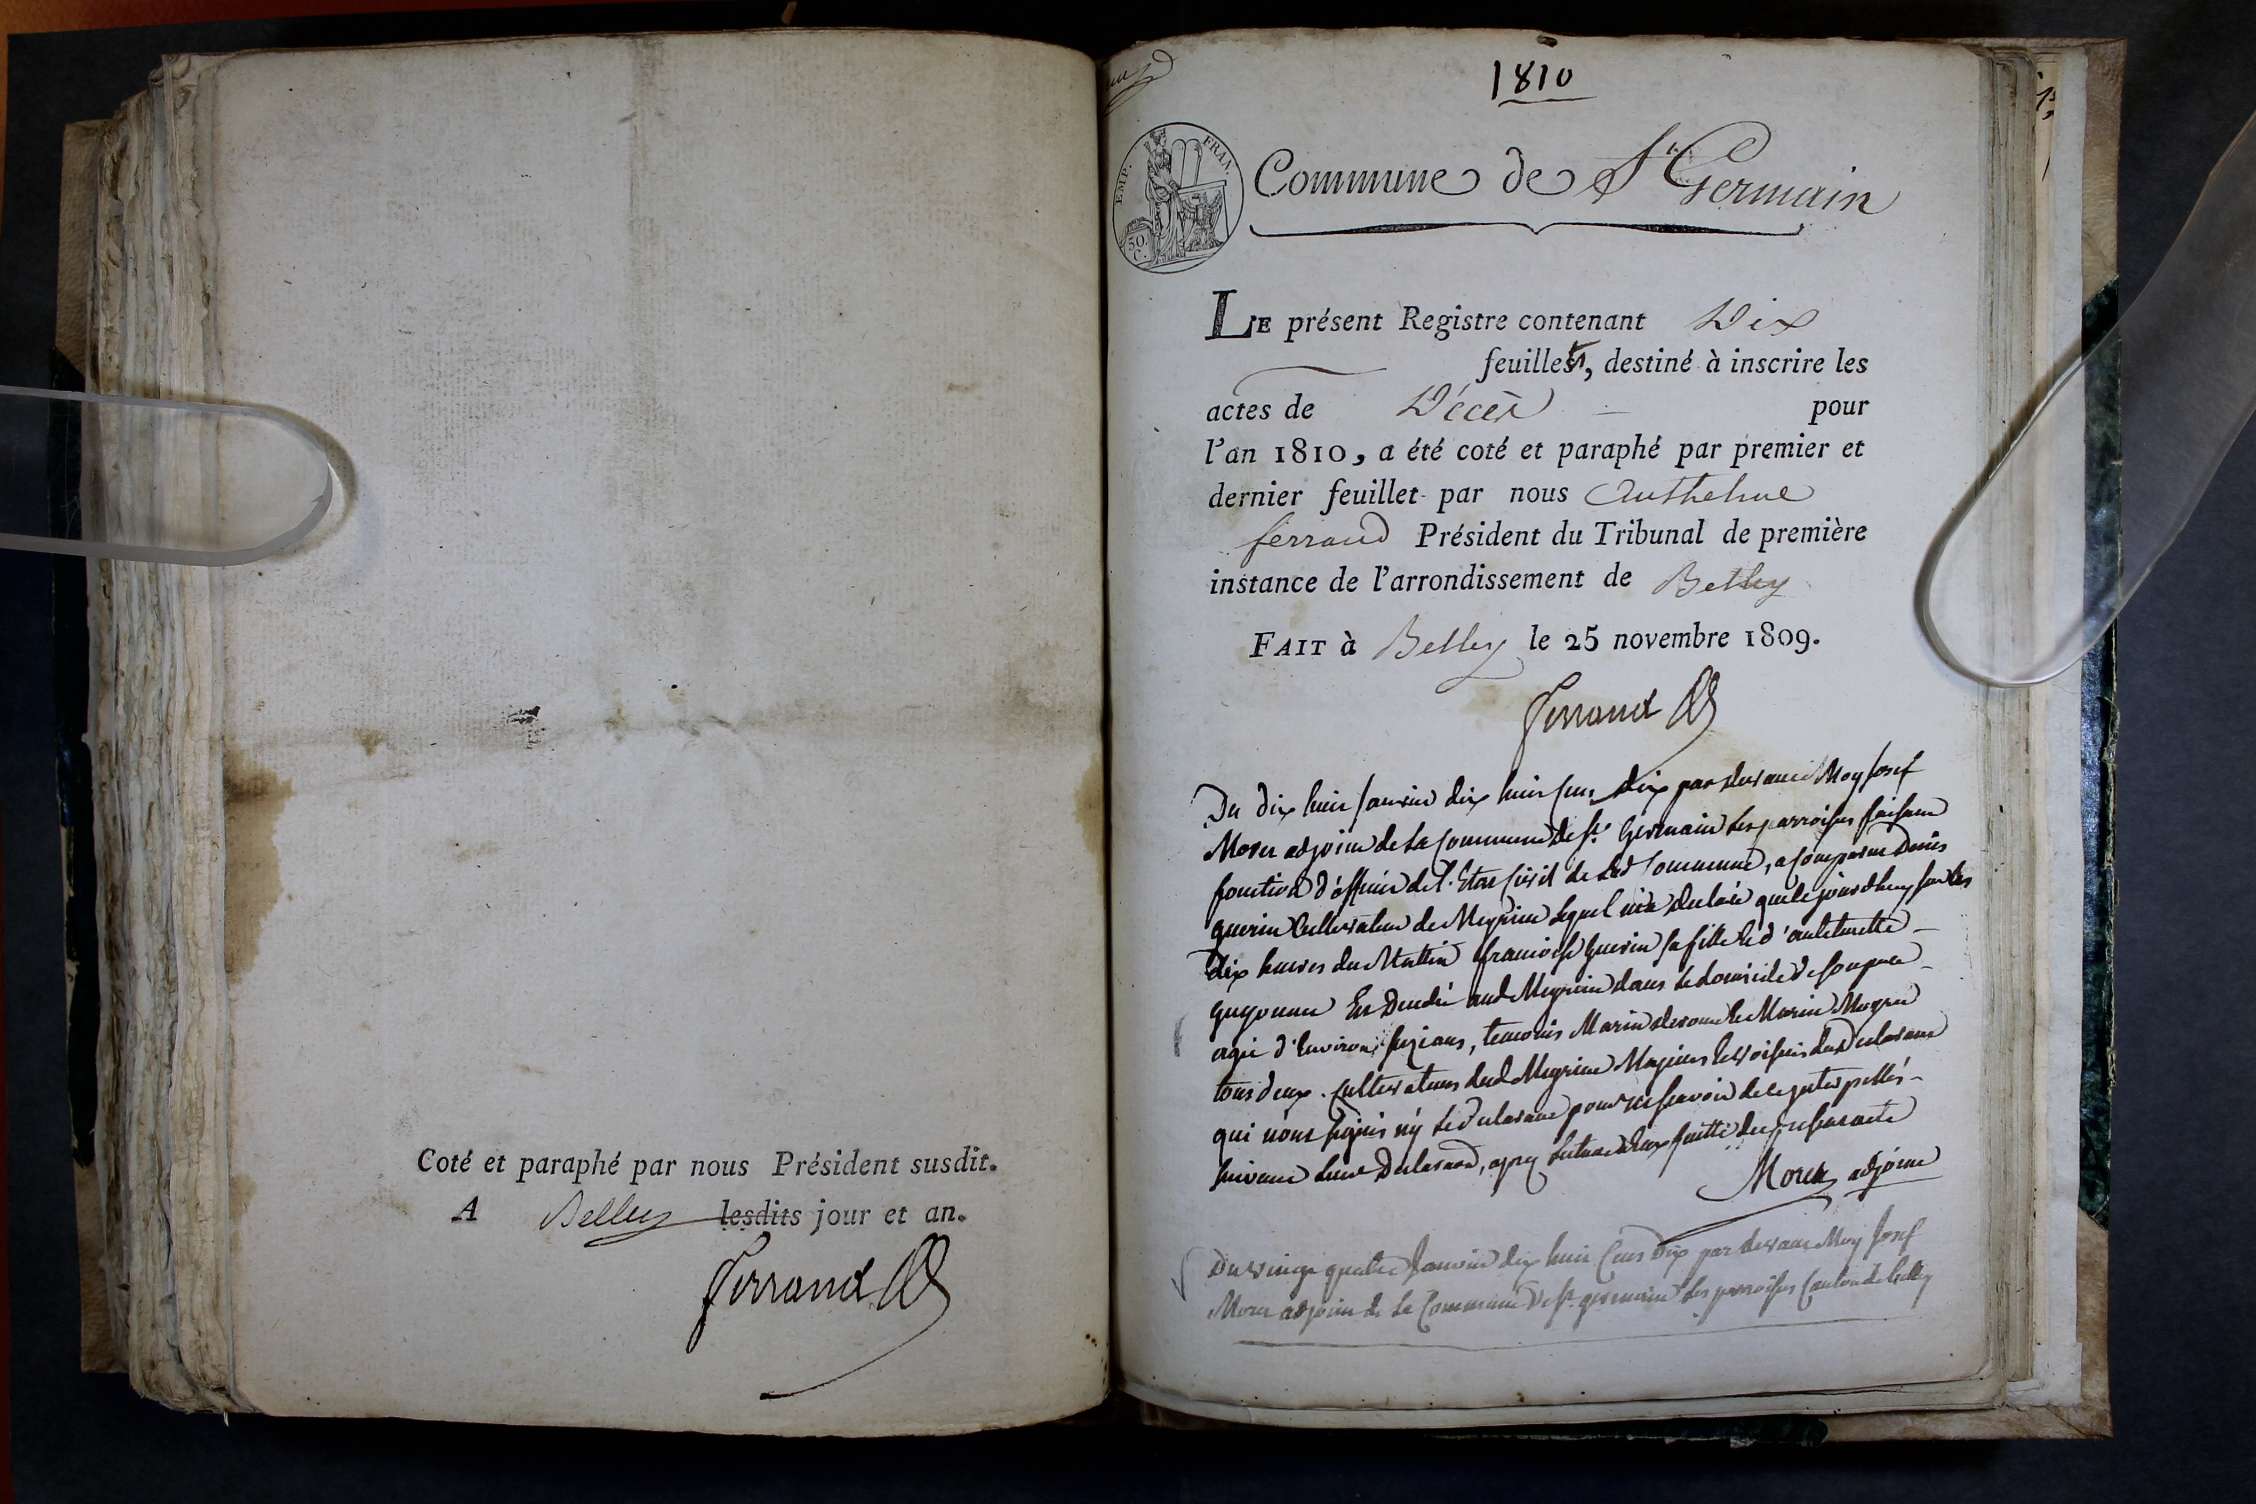 Coté et paraphé par nous Président susdit.
A Belley lesdits jour et an.
Ferrand
1810
EMP. FRAN.
50. C.
Commune de St Germain
LE présent Registre contenant Dix
feuillets, destiné à inscrire les
actes de Décès pour
l'an 1810, a été coté et paraphé par premier et
dernier feuillet par nous Anthelme
ferrand Président du Tribunal de première
instance de l'arrondissement de Belley
FAIT à Belley le 25 novembre 1809.
Ferrand
Du dix huit janvier dix huit cens dix par devant Moy Josef
Morer adjoint de la Commune de St Germain les parroisses faisant
fonction d'officier de l'Etat Civil de lad Commune, a comparu Denis
guerin Cultivateur de Meyrieu lequel m'a declaré que le jourdhuy sur les
dix heures du Matin francoise Guerin sa fille et d'
guyonne Est Decedé aud Meyrieu dans le domicile de son pere
agé d'Environ six ans, temoins Marin et Marin
tous deux Cultivateurs dud Meyrieu Majeurs et voisins du Declarant
qui n'ont signés n'y le Declarant pour ne scavoir de ce enterpellés
suivant leur Declaration, apres lecture a Eux faitte du present acte
Morer adjoint
Du vingt quatre Janvier dix huit Cens Dix par devant Moy Josef
Morer adjoint de la Commune de St germain les parroisses Canton de belley